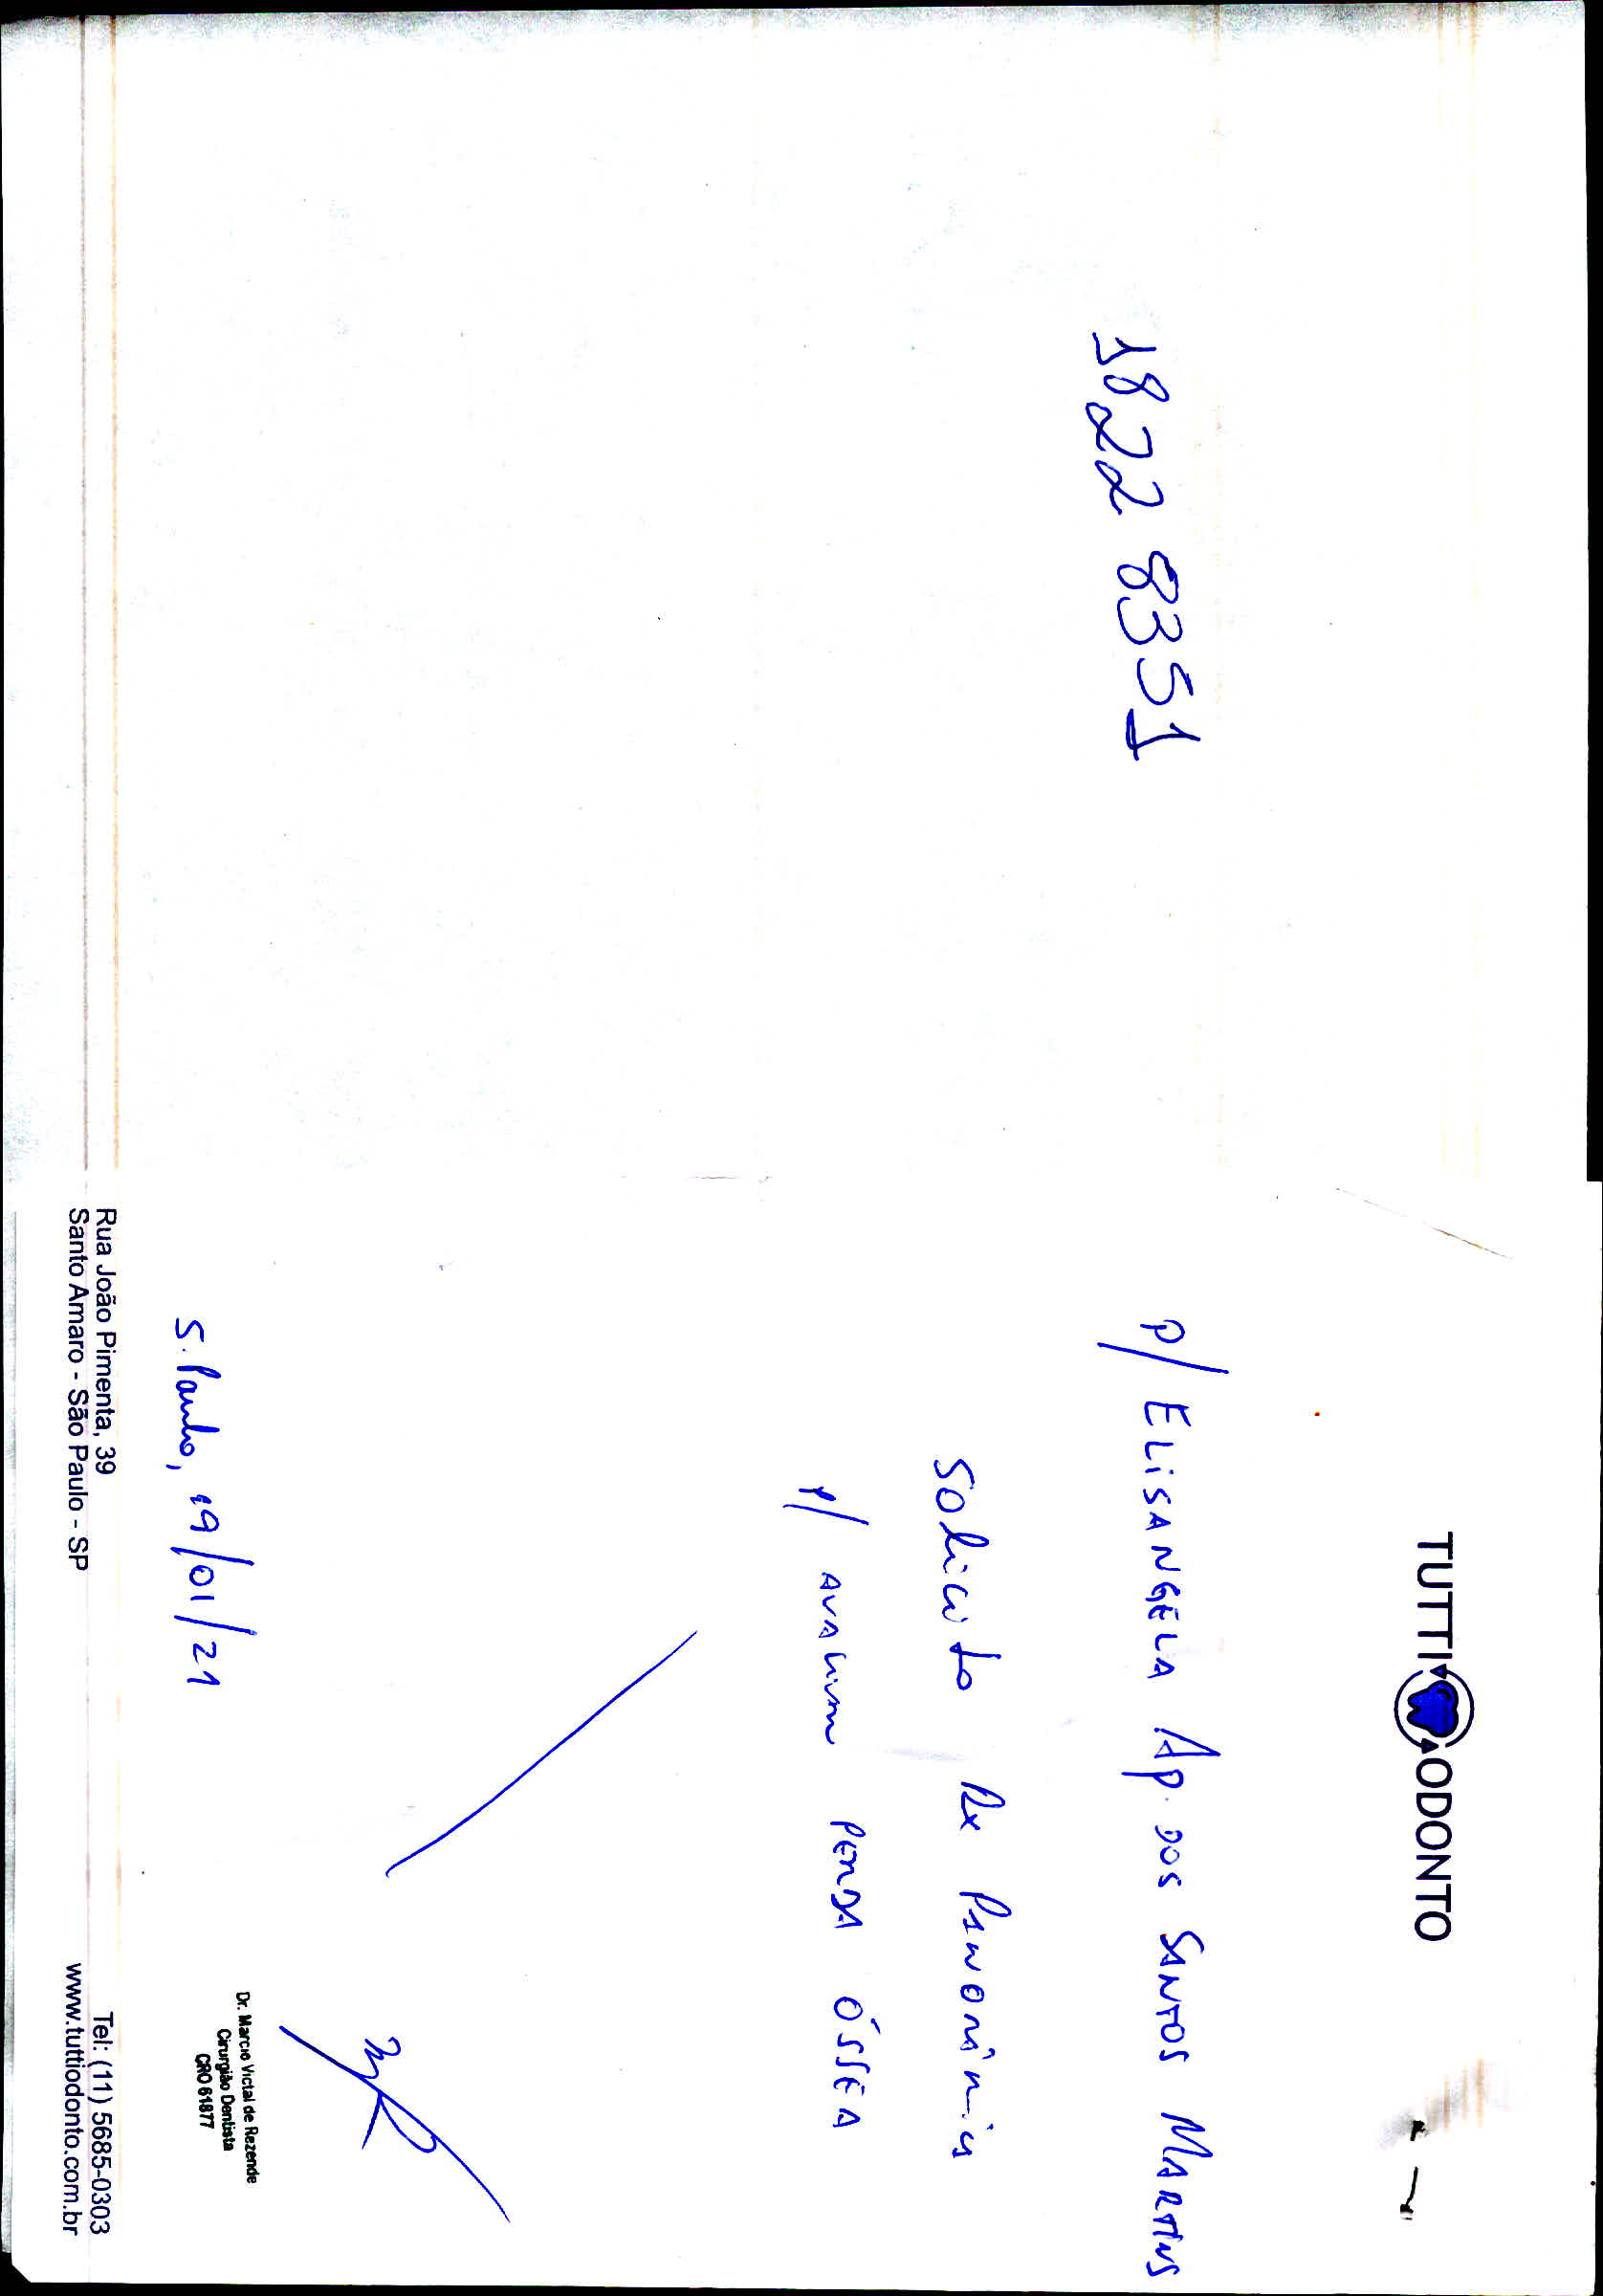 1822 8351
TUTTI ODONTO
p/ ELISANGELA Ap. DOS SANTOS MARTINS
Solicito Rx Panorâmica
p/ AVALIAR PERDA ÓSSEA
S. Paulo, 19/01/21
Dr. Marcio Victal de Rezende
Cirurgião Dentista
CRO 61877
Rua João Pimenta, 39
Santo Amaro - São Paulo - SP
Tel: (11) 5685-0303
www.tuttiodonto.com.br